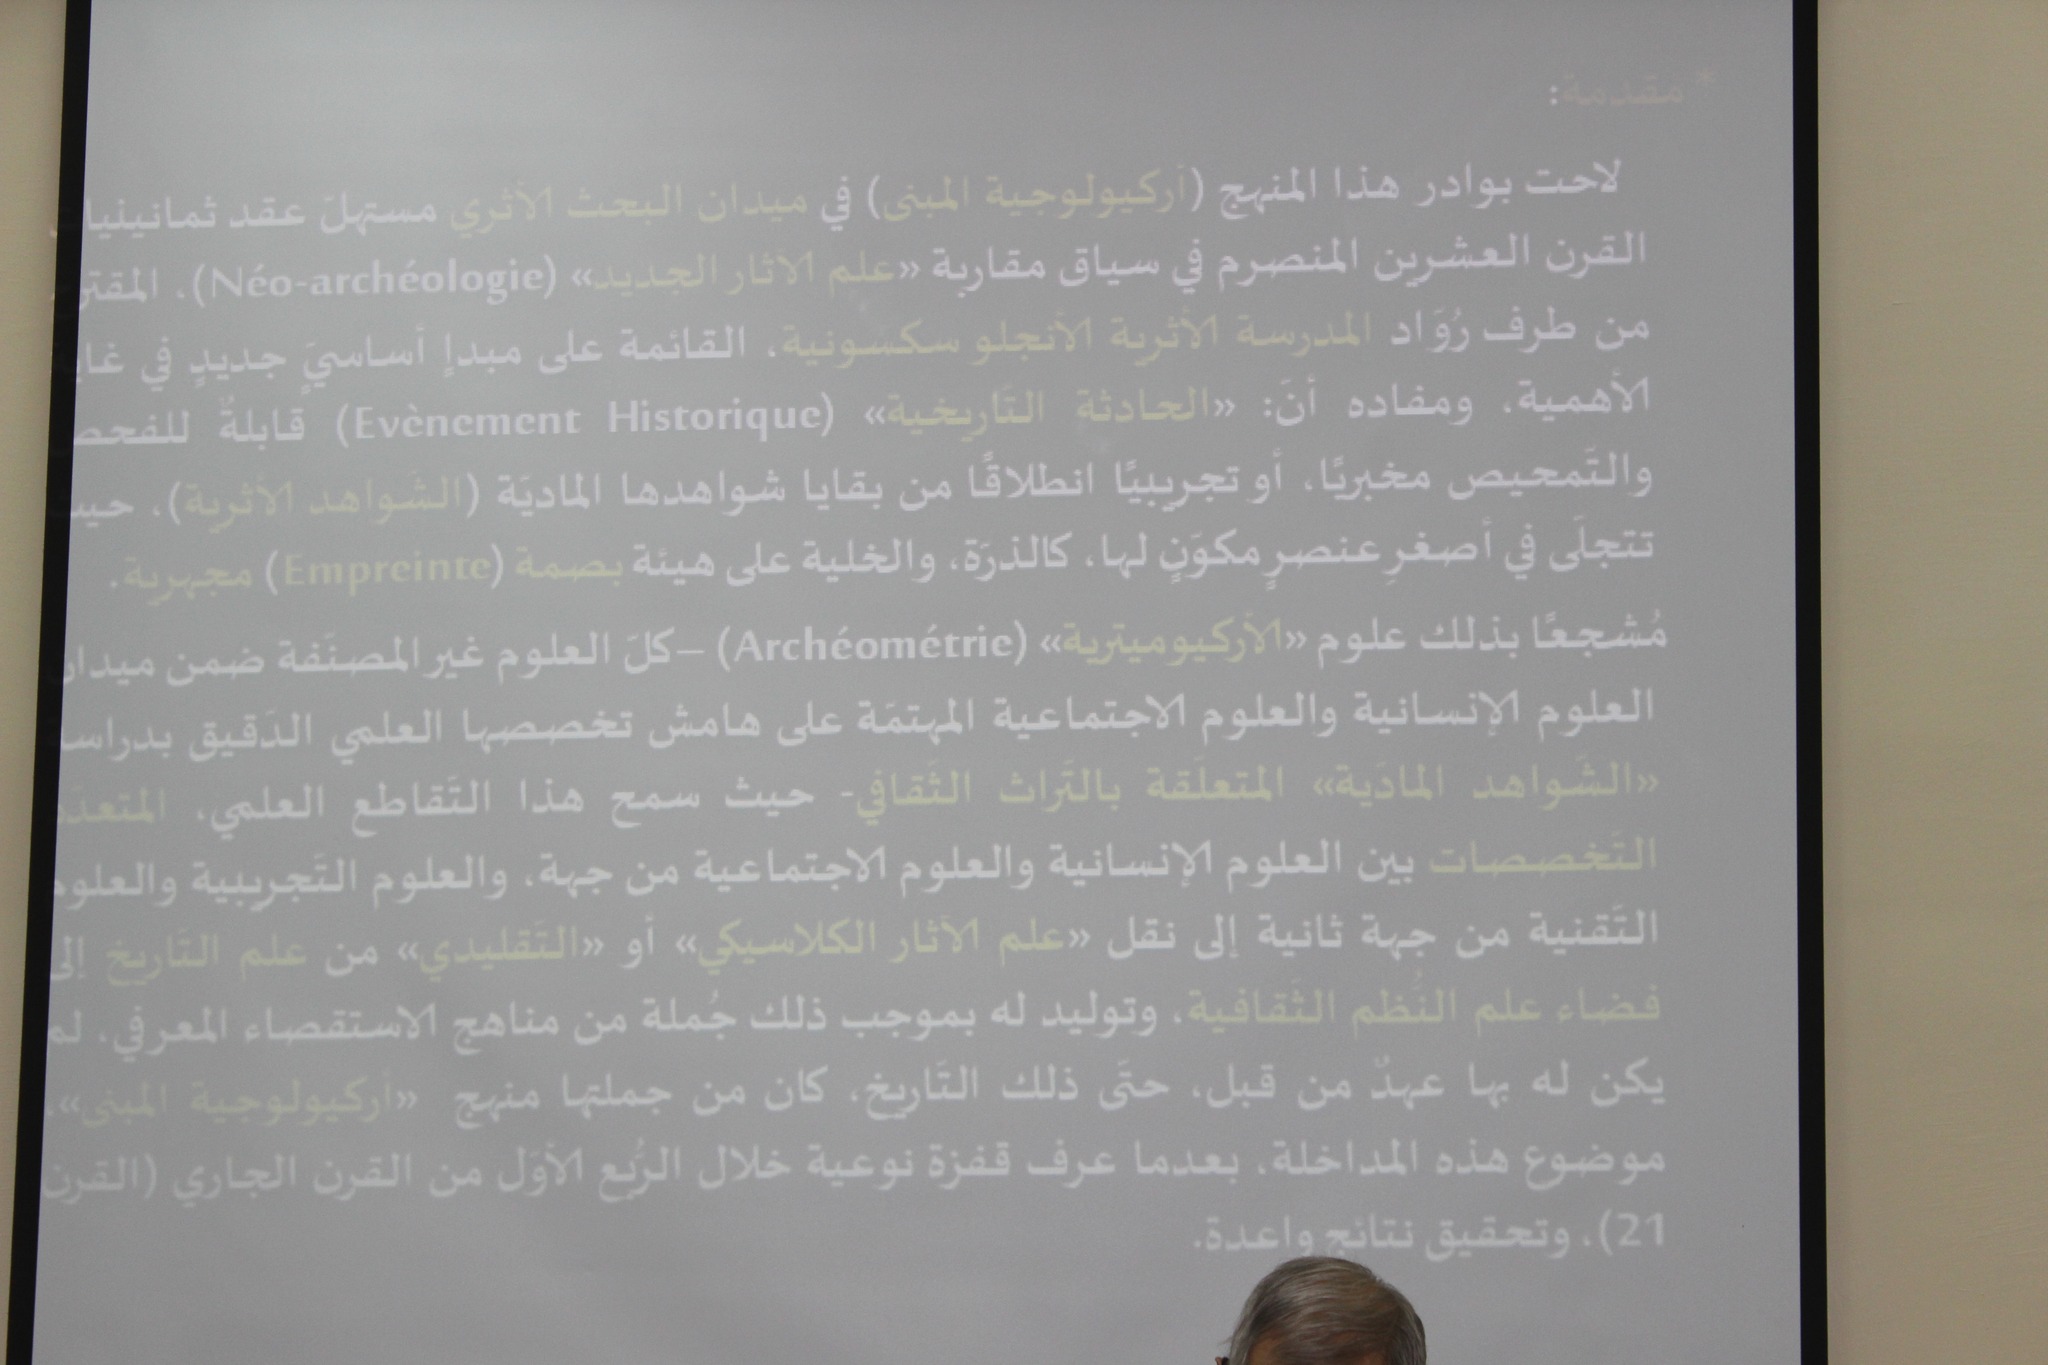 * مقدمة:
لاحت بوادر هذا المنهج (أركيولوجية المبنى) في ميدان البحث الأثري مستهلّ عقد ثمانينيا
القرن العشرين المنصرم في سياق مقاربة «علم الآثار الجديد» (Néo-archéologie)، المقتر
من طرف رُوَّاد المدرسة الأثرية الأنجلو سكسونية، القائمة على مبدإٍ أساسيٍّ جديدٍ في غا
الأهمية، ومفاده أنّ: «الحادثة التّاريخية» (Evènement Historique) قابلةٌ للفحص
والتّمحيص مخبريًا، أو تجريبيًا انطلاقًا من بقايا شواهدها الماديّة (الشّواهد الأثرية)، حيث
تتجلّى في أصغرِ عنصرٍ مكوّنٍ لها، كالذرّة، والخلية على هيئة بصمة (Empreinte) مجهرية.
مُشجعًا بذلك علوم «الأركيوميترية» (Archéométrie) –كلّ العلوم غير المصنّفة ضمن ميدان
العلوم الإنسانية والعلوم الاجتماعية المهتمّة على هامش تخصصها العلمي الدّقيق بدراسـ
«الشّواهد المادّية» المتعلّقة بالتّراث الثّقافي- حيث سمح هذا التّقاطع العلمي، المتعدّد
التّخصصات بين العلوم الإنسانية والعلوم الاجتماعية من جهة، والعلوم التّجريبية والعلوم
التّقنية من جهة ثانية إلى نقل «علم الآثار الكلاسيكي» أو «التّقليدي» من علم التّاريخ إلى
فضاء علم النُّظم الثّقافية، وتوليد له بموجب ذلك جُملة من مناهج الاستقصاء المعرفي، لم
يكن له بها عهدٌ من قبل، حتّى ذلك التّاريخ، كان من جملتها منهج «أركيولوجية المبنى»،
موضوع هذه المداخلة، بعدما عرف قفزة نوعية خلال الرُّبع الأوّل من القرن الجاري (القرن
21)، وتحقيق نتائج واعدة.